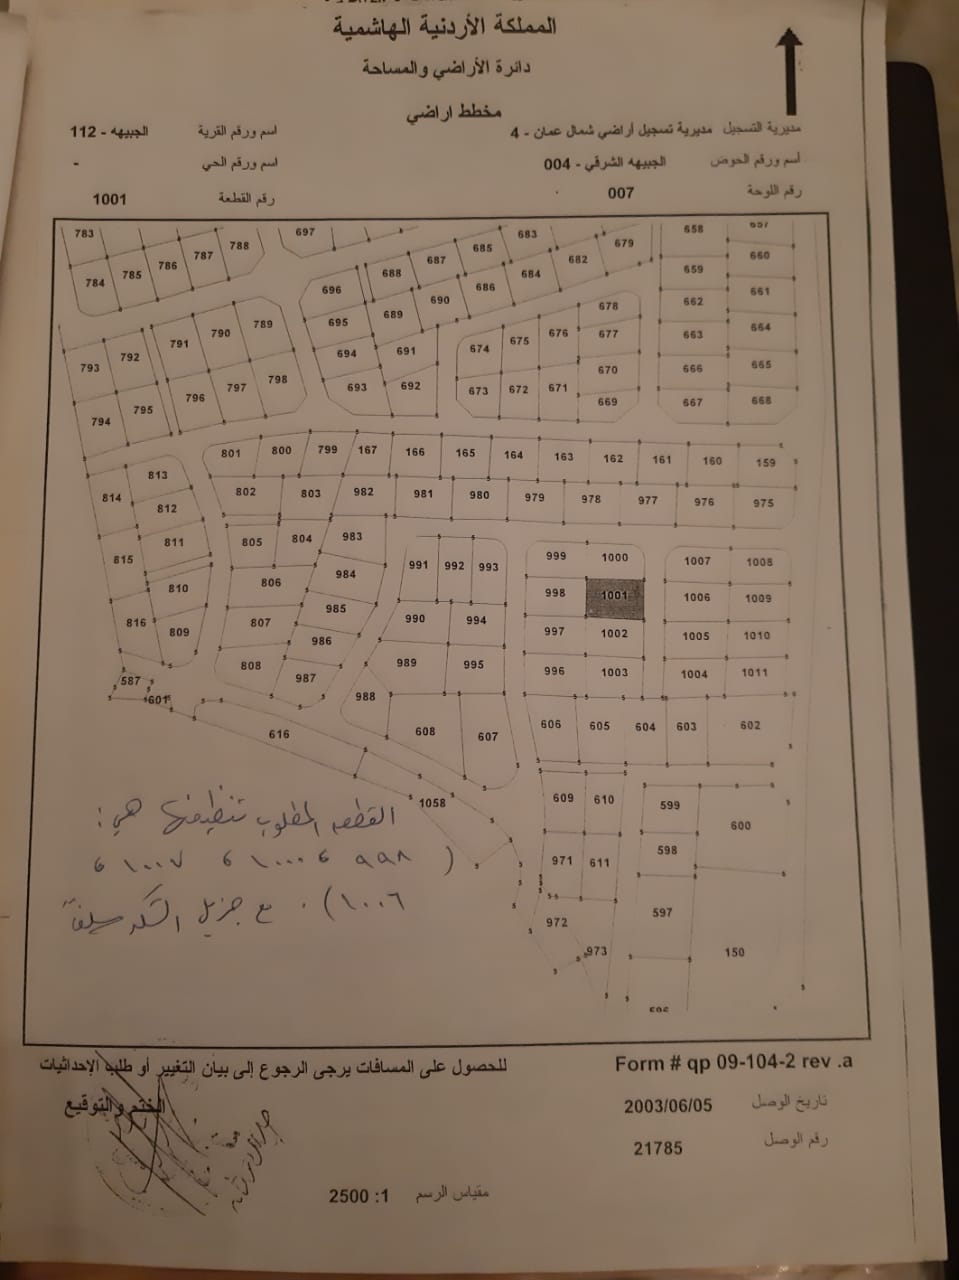 المملكة الأردنية الهاشمية
دائرة الأراضي والمساحة
مخطط اراضي
مديرية التسجيل مديرية تسجيل أراضي شمال عمان - 4 اسم ورقم القرية الجبيهه - 112
اسم ورقم الحوض الجبيهه الشرقي - 004 اسم ورقم الحي -
رقم اللوحة 007 رقم القطعة 1001
783 697 683 679 658 657
784 785 786 787 788 688 687 685 682 659 660
696 690 686 684 662 661
793 792 791 790 789 695 689 678 663 664
694 691 674 675 676 677 666 665
794 795 796 797 798 693 692 673 672 671 670 669 667 668
801 800 799 167 166 165 164 163 162 161 160 159
814 813 802 803 982 981 980 979 978 977 976 975
812
815 811 805 804 983 991 992 993 999 1000 1007 1008
810 806 984 998 1001 1006 1009
816 809 807 985 990 994 997 1002 1005 1010
808 986 989 995 996 1003 1004 1011
587 601 987 988
616 608 607 606 605 604 603 602
1058 609 610 599 600
971 611 598
972 973 597 150
القطعه المطلوب تنظيفها هي :
( ٩٩٨ ، ١٠٠٠ ، ١٠٠٧ ،
١٠٠٦ ) . مع جزيل الشكر سلفاً
للحصول على المسافات يرجى الرجوع إلى بيان التغيير أو طلب الإحداثيات Form # qp 09-104-2 rev .a
الختم والتوقيع
تاريخ الوصل 2003/06/05
رقم الوصل 21785
مقياس الرسم 1: 2500